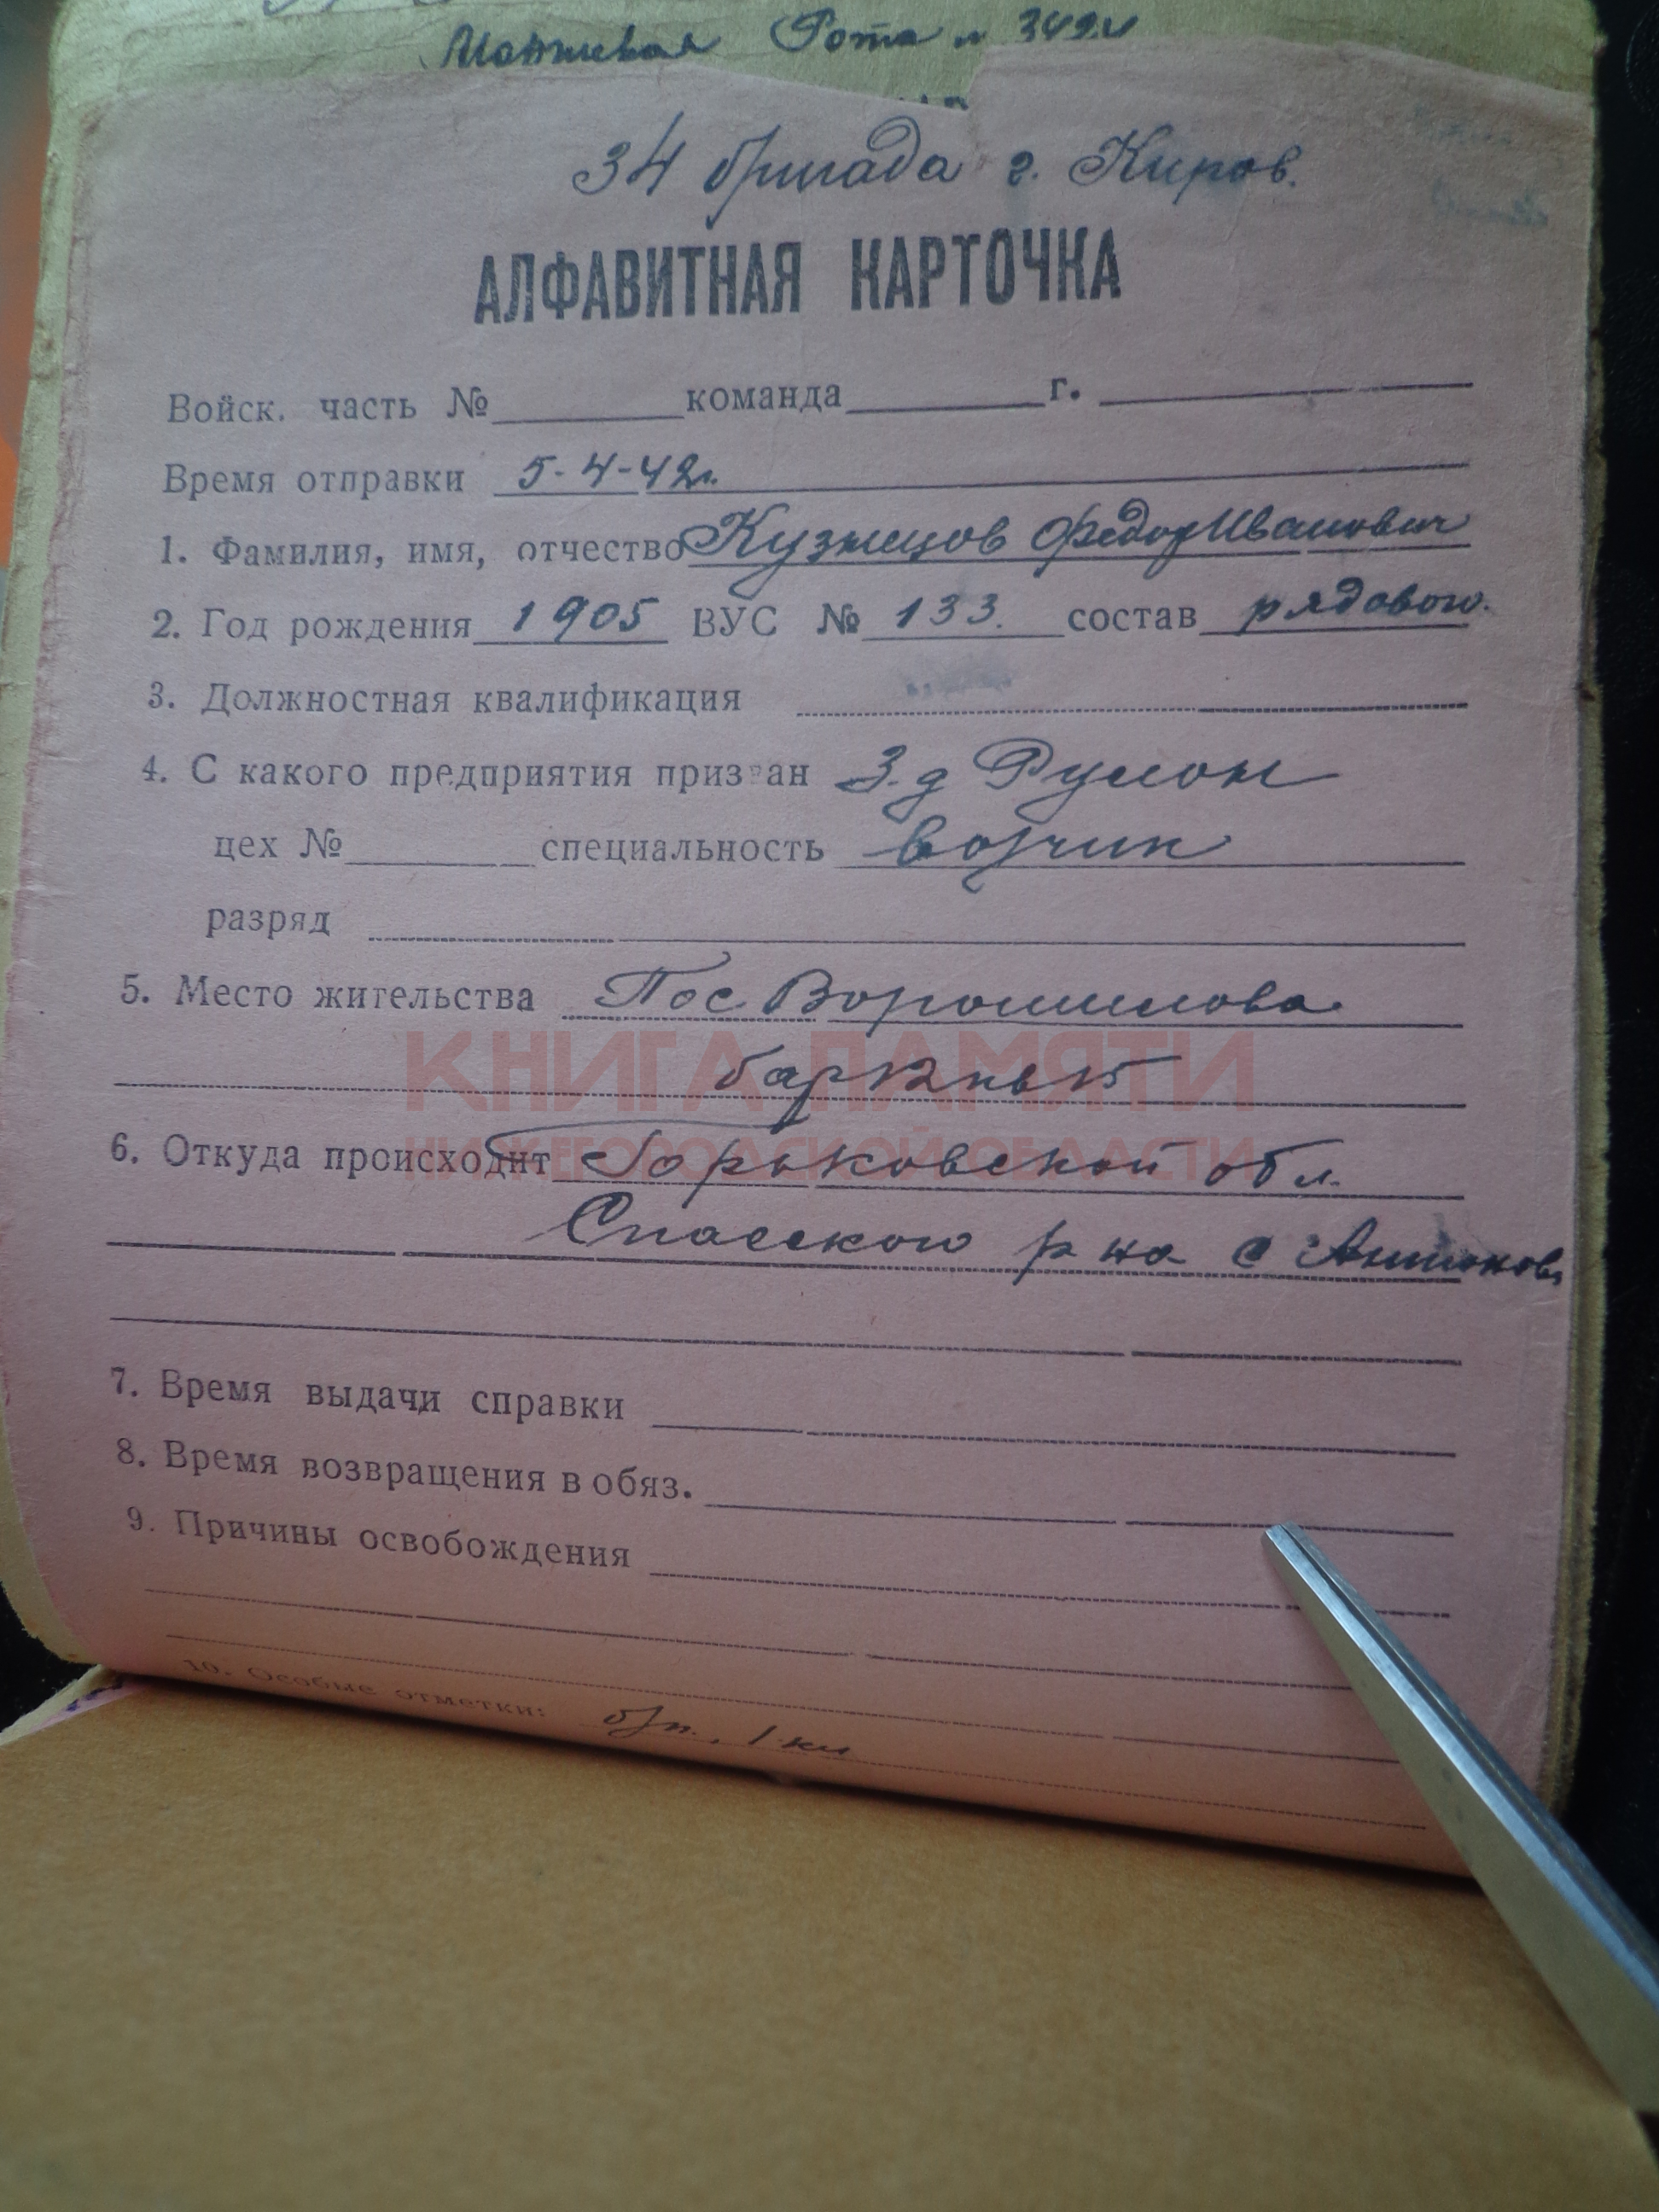 Рота № 349
34 бригада г. Киров.
АЛФАВИТНАЯ КАРТОЧКА
Войск. часть № команда г.
Время отправки 5-4-42г.
1. Фамилия, имя, отчество Кузнецов Федор Иванович
2. Год рождения 1905 ВУС № 133. состав рядового.
3. Должностная квалификация
4. С какого предприятия призван З-д Румон
цех № специальность возчик
разряд
5. Место жительства Пос. Ворошилова
КНИГА ПАМЯТИ
НИЖЕГОРОДСКОЙ ОБЛАСТИ
6. Откуда происходит Горьковской обл.
Спасского р на с
7. Время выдачи справки
8. Время возвращения в обяз.
9. Причины освобождения
10. Особые отметки: б/п., 1 кл